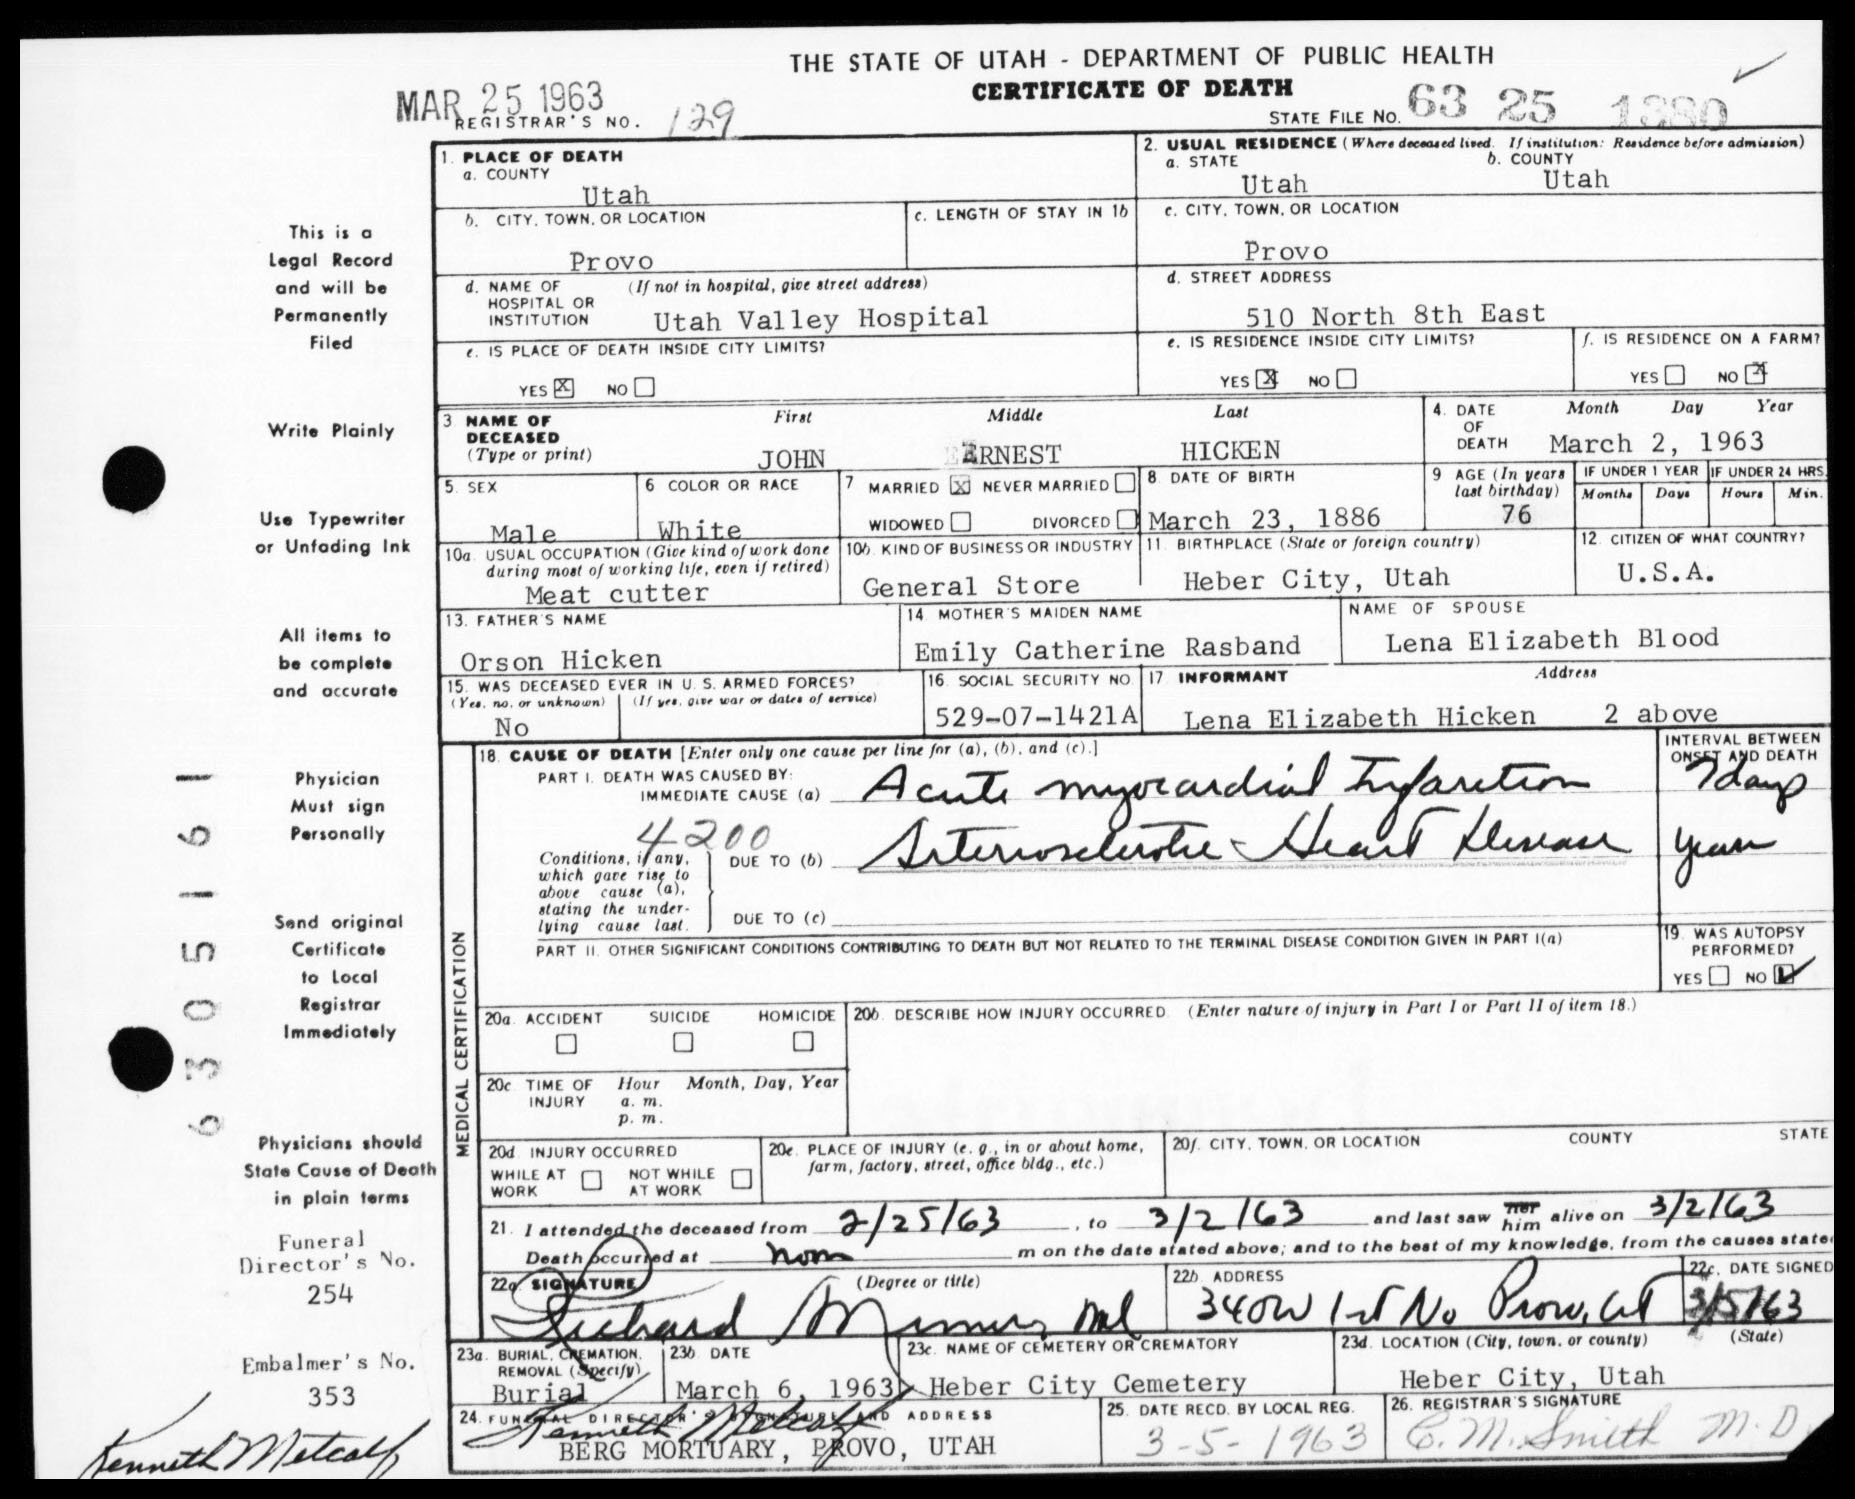 THE STATE OF UTAH - DEPARTMENT OF PUBLIC HEALTH
CERTIFICATE OF DEATH
MAR 25 1963
REGISTRAR'S NO. 129
STATE FILE NO. 63 25 1380
This is a
Legal Record
and will be
Permanently
Filed
Write Plainly
Use Typewriter
or Unfading Ink
All items to
be complete
and accurate
Physician
Must sign
Personally
Send original
Certificate
to Local
Registrar
Immediately
Physicians should
State Cause of Death
in plain terms
Funeral
Director's No.
254
Embalmer's No.
353
Kenneth Metcalf
63 05161
1. PLACE OF DEATH
a. COUNTY
Utah
b. CITY, TOWN, OR LOCATION
Provo
c. LENGTH OF STAY IN 1b
d. NAME OF HOSPITAL OR INSTITUTION (If not in hospital, give street address)
Utah Valley Hospital
e. IS PLACE OF DEATH INSIDE CITY LIMITS?
YES X NO
2. USUAL RESIDENCE (Where deceased lived. If institution: Residence before admission)
a. STATE
Utah
b. COUNTY
Utah
c. CITY, TOWN, OR LOCATION
Provo
d. STREET ADDRESS
510 North 8th East
e. IS RESIDENCE INSIDE CITY LIMITS?
YES X NO
f. IS RESIDENCE ON A FARM?
YES NO X
3 NAME OF DECEASED (Type or print)
First Middle Last
JOHN ERNEST HICKEN
4. DATE OF DEATH
Month Day Year
March 2, 1963
5. SEX
Male
6 COLOR OR RACE
White
7 MARRIED X NEVER MARRIED
WIDOWED DIVORCED
8. DATE OF BIRTH
March 23, 1886
9 AGE (In years last birthday)
76
IF UNDER 1 YEAR
Months Days
IF UNDER 24 HRS.
Hours Min.
10a. USUAL OCCUPATION (Give kind of work done during most of working life, even if retired)
Meat cutter
10b. KIND OF BUSINESS OR INDUSTRY
General Store
11. BIRTHPLACE (State or foreign country)
Heber City, Utah
12. CITIZEN OF WHAT COUNTRY?
U.S.A.
13. FATHER'S NAME
Orson Hicken
14 MOTHER'S MAIDEN NAME
Emily Catherine Rasband
NAME OF SPOUSE
Lena Elizabeth Blood
15. WAS DECEASED EVER IN U. S. ARMED FORCES?
(Yes, no, or unknown) (If yes, give war or dates of service)
No
16. SOCIAL SECURITY NO.
529-07-1421A
17 INFORMANT Address
Lena Elizabeth Hicken 2 above
MEDICAL CERTIFICATION
18. CAUSE OF DEATH [Enter only one cause per line for (a), (b), and (c).]
PART I. DEATH WAS CAUSED BY:
IMMEDIATE CAUSE (a) Acute myocardial Infarction
4200
Conditions, if any, which gave rise to above cause (a), stating the underlying cause last.
DUE TO (b) Arteriosclerotic Heart Disease
DUE TO (c)
INTERVAL BETWEEN ONSET AND DEATH
7 days
years
PART II. OTHER SIGNIFICANT CONDITIONS CONTRIBUTING TO DEATH BUT NOT RELATED TO THE TERMINAL DISEASE CONDITION GIVEN IN PART I(a)
19. WAS AUTOPSY PERFORMED?
YES NO
20a. ACCIDENT SUICIDE HOMICIDE
20b. DESCRIBE HOW INJURY OCCURRED. (Enter nature of injury in Part I or Part II of item 18.)
20c. TIME OF INJURY Hour Month, Day, Year
a. m.
p. m.
20d. INJURY OCCURRED
WHILE AT WORK NOT WHILE AT WORK
20e. PLACE OF INJURY (e. g., in or about home, farm, factory, street, office bldg., etc.)
20f. CITY, TOWN, OR LOCATION COUNTY STATE
21. I attended the deceased from 2/25/63, to 3/2/63 and last saw her him alive on 3/2/63
Death occurred at noon m on the date stated above; and to the best of my knowledge, from the causes state
22a. SIGNATURE (Degree or title)
Richard
22b. ADDRESS
340 W 1st No Provo, Ut
22c. DATE SIGNED
3/5/63
23a. BURIAL, CREMATION, REMOVAL (Specify)
Burial
23b DATE
March 6, 1963
23c. NAME OF CEMETERY OR CREMATORY
Heber City Cemetery
23d. LOCATION (City, town, or county) (State)
Heber City, Utah
24. FUNERAL DIRECTOR'S SIGNATURE AND ADDRESS
Kenneth Metcalf
BERG MORTUARY, PROVO, UTAH
25. DATE RECD. BY LOCAL REG.
3-5-1963
26. REGISTRAR'S SIGNATURE
C. M. Smith M.D.